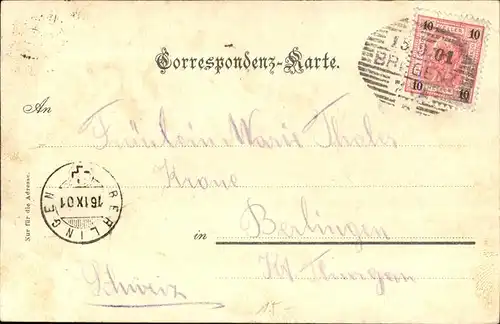 10 10
HELLER
13.9.01
BREGENZ
10 10
Correspondenz-Karte.
An
Fräulein Marie Thaler
Krone
in Berlingen
Kt. Thurgau
Schweiz
BERLINGEN
16 IX 01
Nur für die Adresse.
15.-